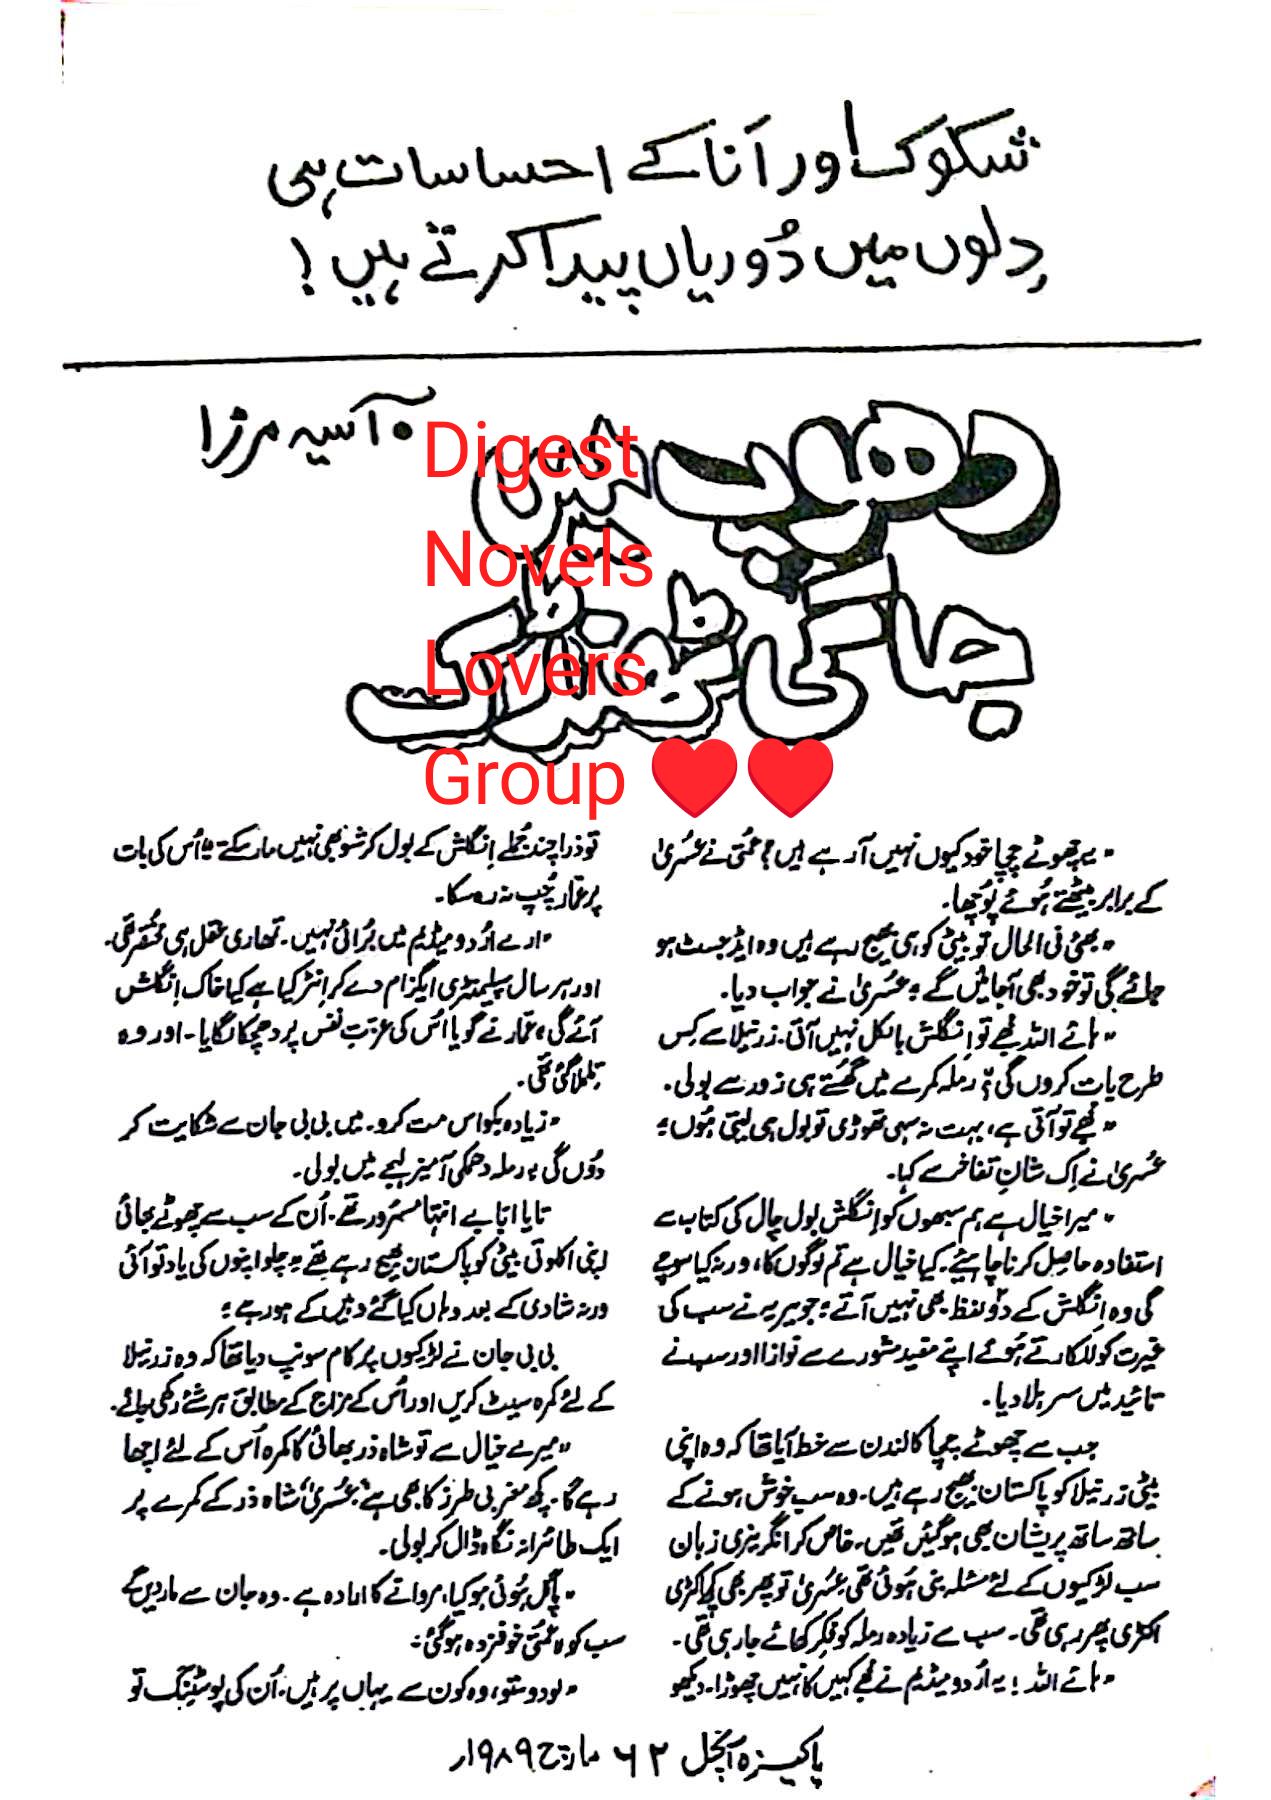 شکوک اور اَنا کے احساسات ہی
دِلوں میں دُوریاں پیدا کرتے ہیں !
آسیہ مرزا
دھوپ میں
جا کی ٹھنڈک
Digest
Novels
Lovers
Group ❤❤
"یہ چھوٹے چچا خود کیوں نہیں آ رہے ہیں؟" عمّی نے عُسریٰ
کے برابر بیٹھتے ہُوئے پُوچھا۔
"بھئی فی الحال تو بیٹی کو ہی بھیج رہے ہیں وہ ایڈجسٹ ہو
جائے گی تو خود بھی آ جائیں گے" عُسریٰ نے جواب دیا۔
"ہائے اللہ مجھے تو اِنگلش بالکل نہیں آتی۔ زرتیلا سے کِس
طرح بات کروں گی؟" رملہ کمرے میں گھُستے ہی زور سے بولی۔
"مجھے تو آتی ہے، بہت نہ سہی تھوڑی تو بول ہی لیتی ہُوں"
عُسریٰ نے اِک شانِ تفاخر سے کہا۔
"میرا خیال ہے ہم سبھوں کو اِنگلش بول چال کی کتاب سے
استفادہ حاصِل کرنا چاہیئے۔ کیا خیال ہے تم لوگوں کا، ورنہ کیا سوچے
گی وہ اِنگلش کے دو لفظ بھی نہیں آتے" جویریہ نے سب کی
غیرت کو للکارتے ہُوئے اپنے مفید مشورے سے نوازا اور سب نے
تائید میں سر ہلا دیا۔
جب سے چھوٹے چچا کا لندن سے خط آیا تھا کہ وہ اپنی
بیٹی زرتیلا کو پاکستان بھیج رہے ہیں۔ وہ سب خوش ہونے کے
ساتھ ساتھ پریشان بھی ہو گئیں تھیں۔ خاص کر انگریزی زبان
سب لڑکیوں کے لئے مسئلہ بنی ہُوئی تھی، عُسریٰ تو پھر بھی کچھ اکڑی
اکڑی پھر رہی تھی۔ سب سے زیادہ رملہ کو فِکر کھائے جا رہی تھی۔
"ہائے اللہ! یہ اُردو میڈیم نے مجھے کہیں کا نہیں چھوڑا۔ دیکھو
تو ذرا چند جُملے اِنگلش کے بول کر شو بھی نہیں مار سکتے" اُس کی بات
پر عمّار چُپ نہ رہ سکا۔
"ارے اُردو میڈیم میں بُرائی نہیں۔ تمھاری عقل ہی مختصر تھی۔
اور ہر سال سپلیمنٹری ایگزام دے کر انٹر کیا ہے کیا خاک اِنگلش
آئے گی" عمّار نے گویا اُس کی عزتِ نفس پر دھچکا لگایا۔ اور وہ
تِلملا گئی تھی۔
"زیادہ بکواس مت کرو۔ میں بی بی جان سے شکایت کر
دُوں گی" رملہ دھمکی آمیز لہجے میں بولی۔
تایا ابّا بے انتہا مسرُور تھے۔ اُن کے سب سے چھوٹے بھائی
اپنی اکلوتی بیٹی کو پاکستان بھیج رہے تھے "چلو اپنوں کی یاد تو آئی
ورنہ شادی کے بعد وہاں کیا گئے وہیں کے ہو رہے"
بی بی جان نے لڑکیوں پر کام سونپ دیا تھا کہ وہ زرتیلا
کے لئے کمرہ سیٹ کریں اور اُس کے مزاج کے مطابق ہر شئے رکھی جائے۔
"میرے خیال سے تو شاہ ذر بھائی کا کمرہ اُس کے لئے اچھا
رہے گا۔ کچھ مغربی طرز کا بھی ہے" عُسریٰ شاہ ذر کے کمرے پر
ایک طائرانہ نگاہ ڈال کر بولی۔
"پاگل ہُوئی ہو کیا، مروانے کا ارادہ ہے۔ وہ جان سے مار دیں گے
سب کو" عمّی خوفزدہ ہو گئی۔
"لو دوستو، وہ کون سے یہاں پر ہیں۔ اُن کی پوسٹنگ تو
پاکیزہ آنچل ۶۲ مارچ ۱۹۸۹ار